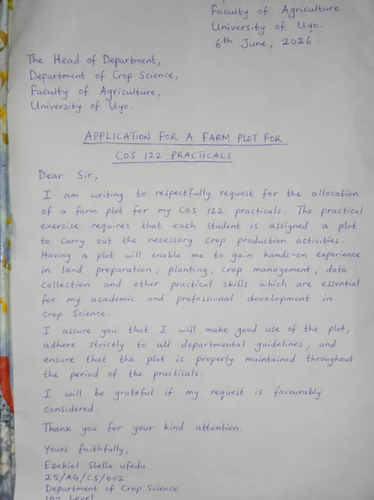 Faculty of Agriculture
University of Uyo.
6th June, 2026.
The Head of Department,
Department of Crop Science,
Faculty of Agriculture,
University of Uyo.
APPLICATION FOR A FARM PLOT FOR
COS 122 PRACTICALS
Dear Sir,
I am writing to respectfully request for the allocation
of a farm plot for my COS 122 practicals. The practical
exercise requires that each student is assigned a plot
to carry out the necessary crop production activities.
Having a plot will enable me to gain hands-on experience
in land preparation, planting, crop management, data
collection and other practical skills which are essential
for my academic and professional development in
Crop Science.
I assure you that I will make good use of the plot,
adhere strictly to all departmental guidelines, and
ensure that the plot is properly maintained throughout
the period of the practicals.
I will be grateful if my request is favourably
considered.
Thank you for your kind attention.
Yours faithfully,
Ezekiel Stella ufedu
25/AG/CS/002
Department of Crop Science
100 Level